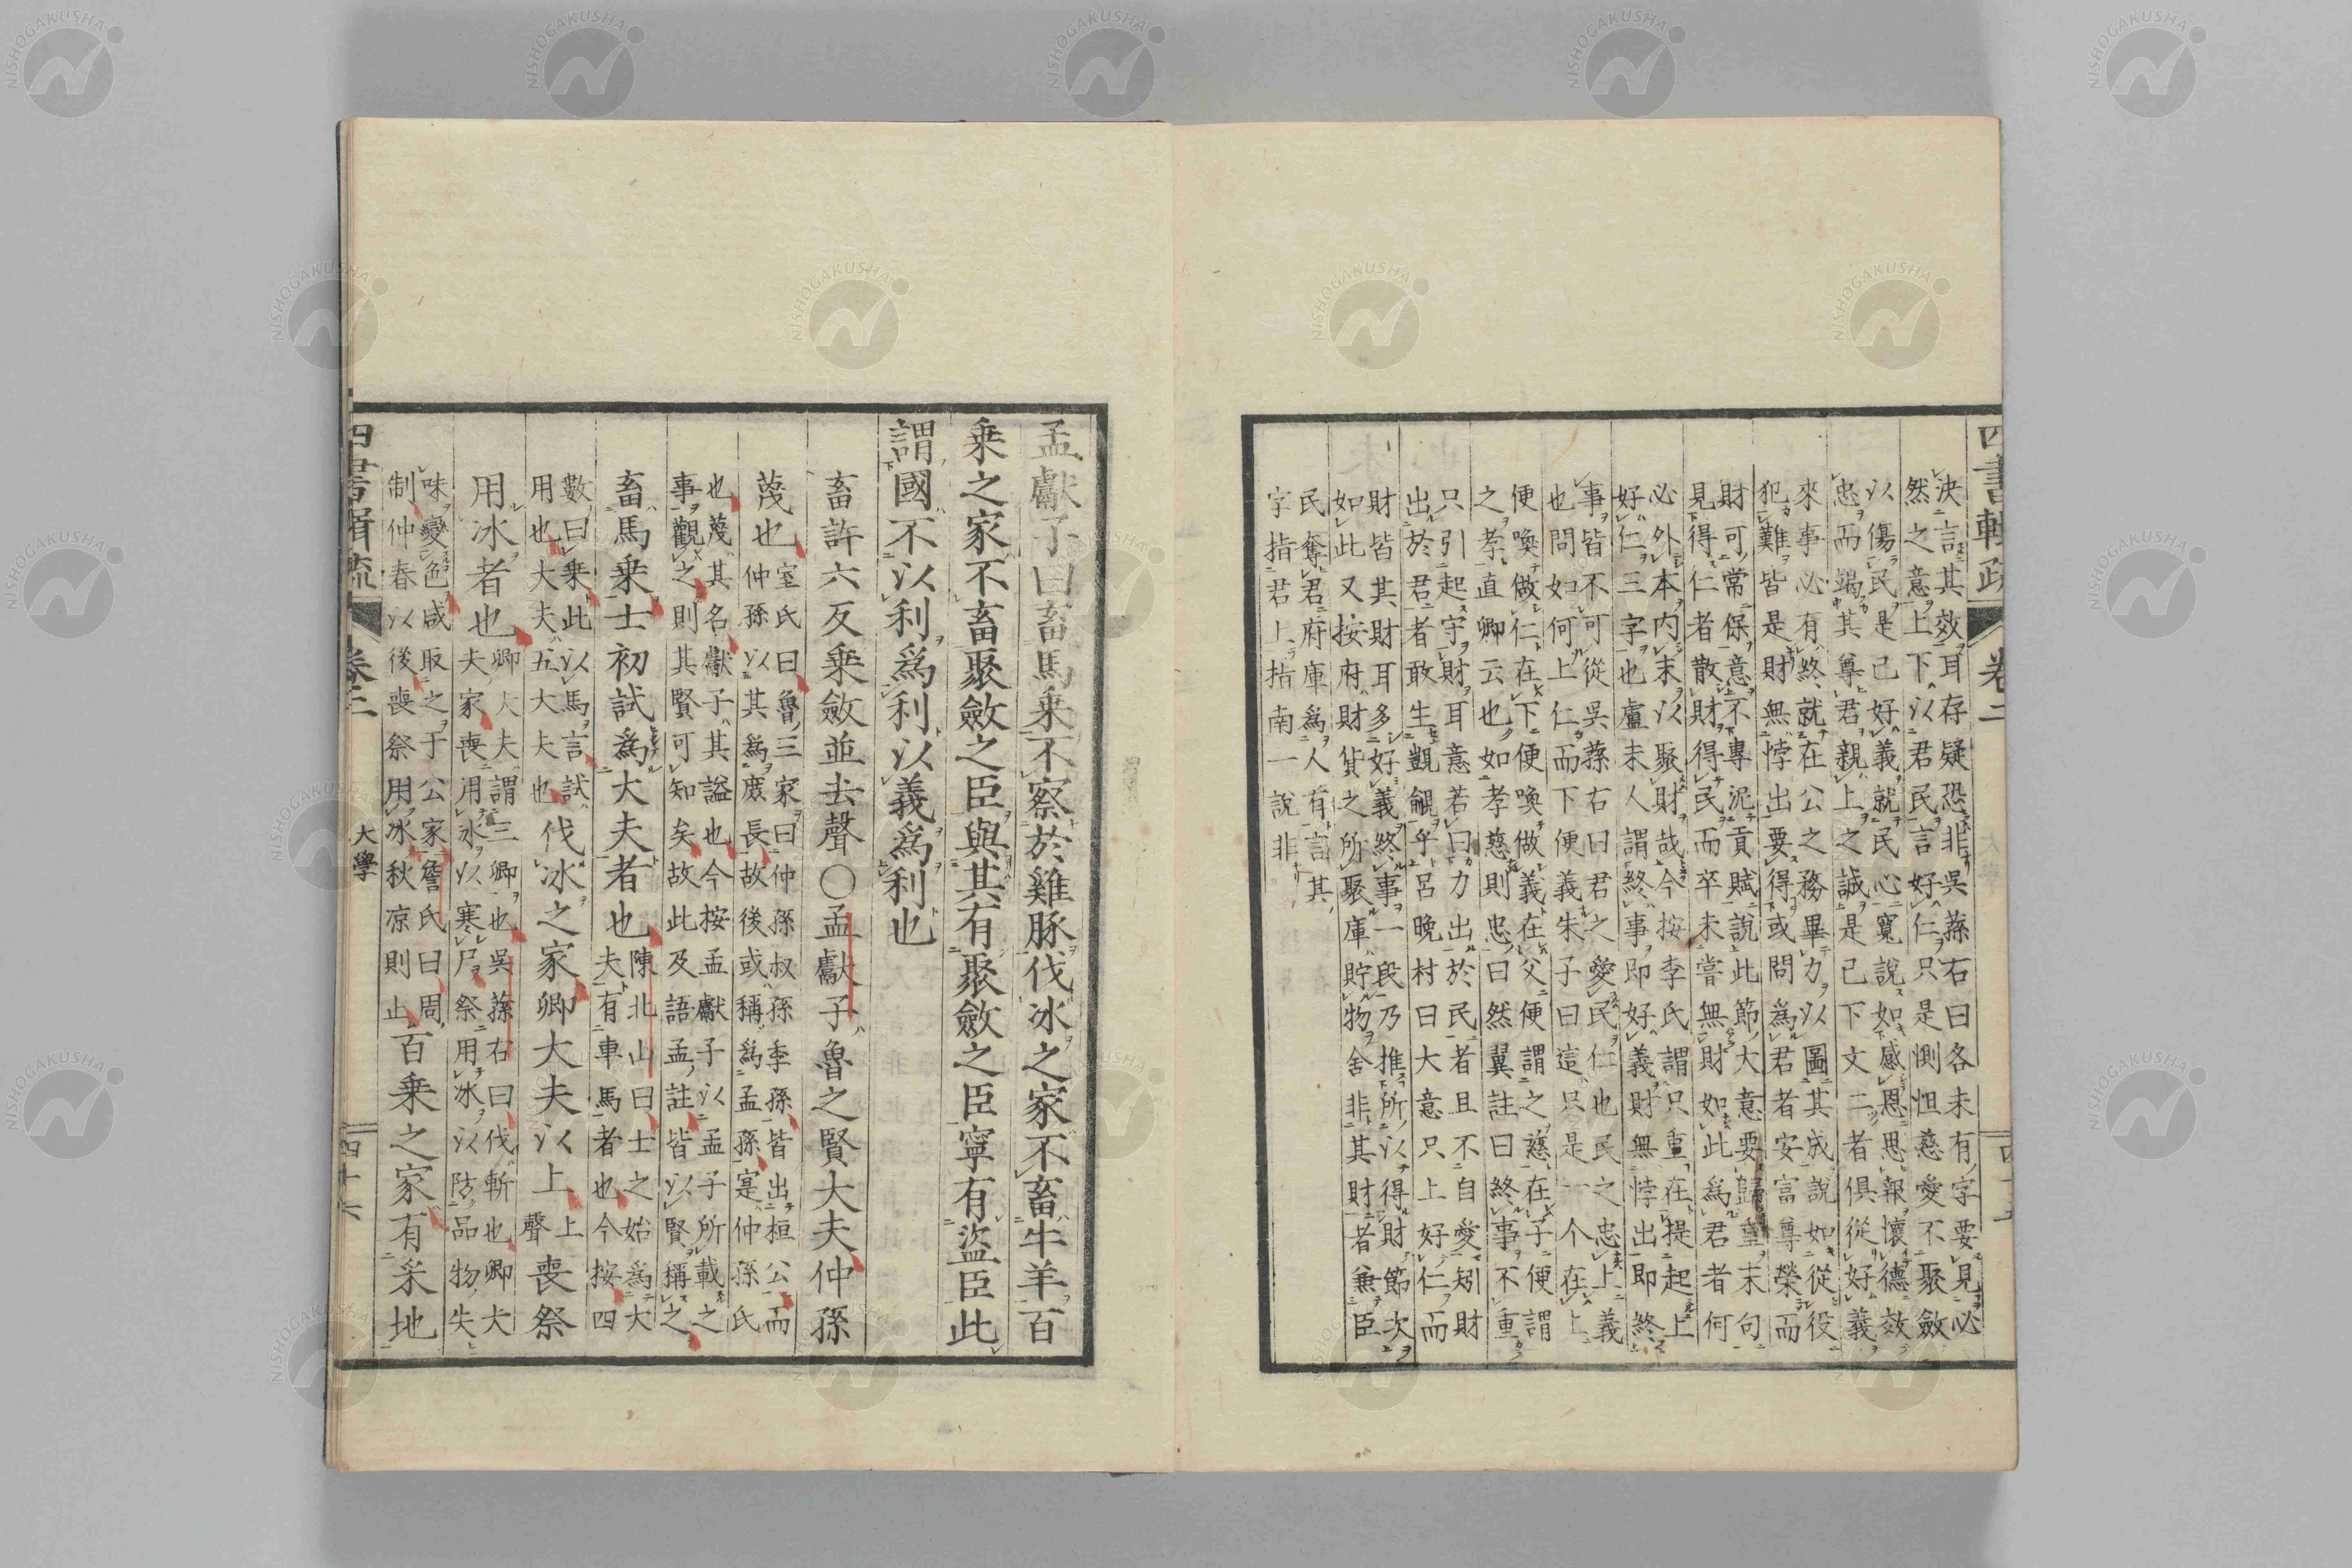 四書輯疏 卷二 四十五
決言其效耳存疑恐非吳蓀右曰各未有字要見必
然之意上下以君民言好仁只是惻怛慈愛不聚斂
以傷民是己好義就民心寬說如感恩思報懷德效
忠而竭其尊君親上之誠是己下文二者俱從好義
來事必有終就在公之務畢力以圖其成說如從役
犯難皆是財無悖出要得或問爲君者安富尊榮而
財可常保意不專泥貢賦說此節大意要歸重末句
見得仁者散財得民而卒未嘗無財如此爲君者何
必外本內末以聚財哉今按李氏謂只重在提起上
好仁三字也盧未人謂終事即好義財無悖出即終
事皆不可從吳蓀右曰君之愛民仁也民之忠上義
也問如何上仁而下便義朱子曰這只是一个在上
便喚做仁在下便喚做義在父便謂之慈在子便謂
之孝直卿云也如孝慈則忠曰然翼註曰終事不重
只引起守財耳意若曰力出於民者且不自愛矧財
出於君者敢生覬覦乎呂晚村曰大意只上好仁而
財皆其財耳多好義終事一段乃推所以得財節次
如此又按府財貨之所聚庫貯物舍非其財者兼臣
民奪君府庫爲人有言其
字指君上指南一說非
孟獻子曰畜馬乘不察於雞豚伐冰之家不畜牛羊百
乘之家不畜聚斂之臣與其有聚斂之臣寧有盜臣此
謂國不以利爲利以義爲利也
畜許六反乘斂並去聲○孟獻子魯之賢大夫仲孫
蔑也
室氏曰魯三家曰仲孫叔孫季孫皆出桓公而
仲孫以其爲庶長故後或稱爲孟孫寔仲孫氏
也蔑其名獻子其謚也今按孟獻子以孟子所載之
事觀之則其賢可知矣故此及語孟註皆以賢稱之
畜馬乘士初試爲大夫者也
陳北山曰士之始爲大
夫有車馬者也今按四
數曰乘此以馬言試
用也大夫五大夫也
伐冰之家卿大夫以上
上
聲
喪祭
用冰者也
卿大夫謂三卿也吳蓀右曰伐斬也卿大
夫家喪用冰以寒尸祭用冰以防品物失
味變色咸取之于公家詹氏曰周
制仲春以後喪祭用冰秋凉則止
百乘之家有采地
四書輯疏 卷二 大學 四十六